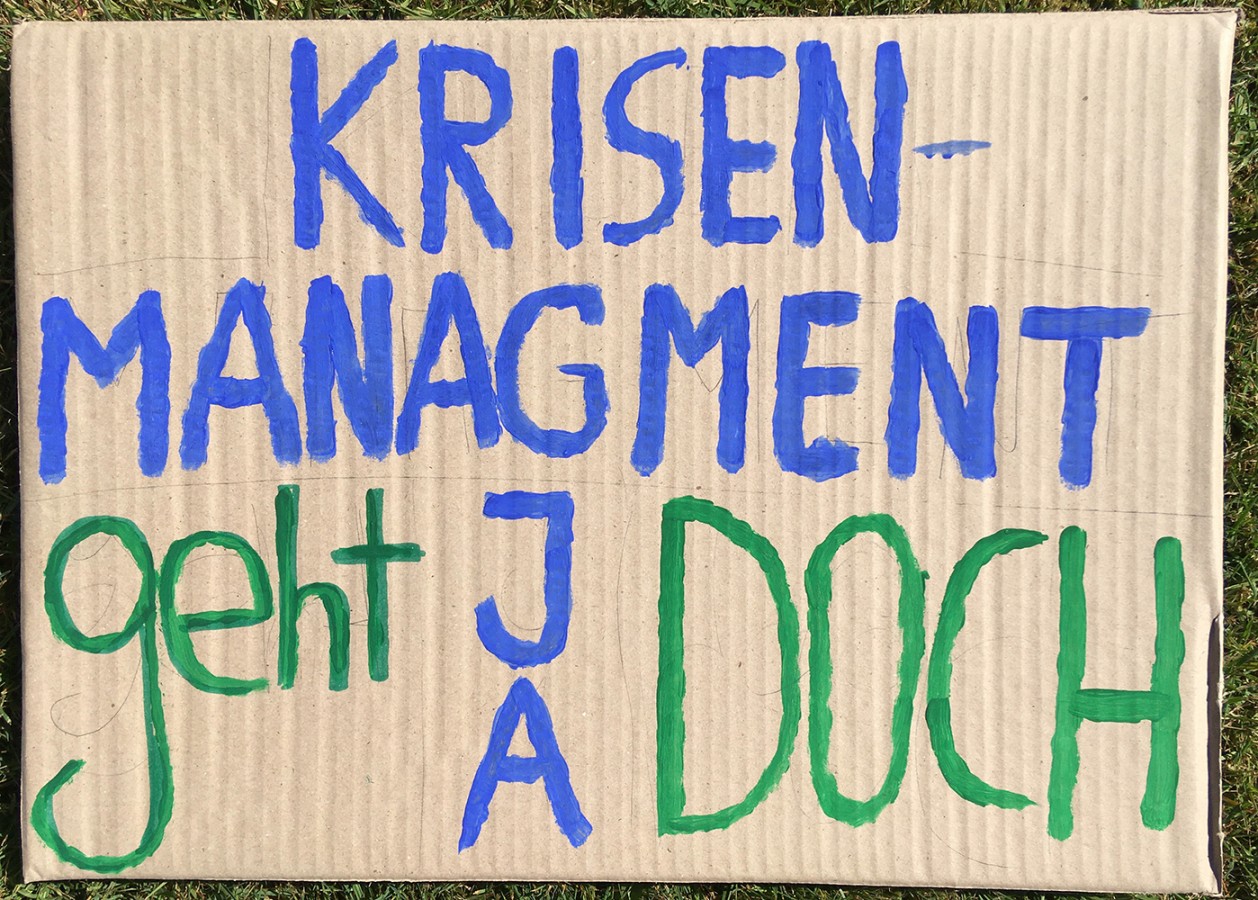 KRISEN-
MANAGMENT
geht JA DOCH